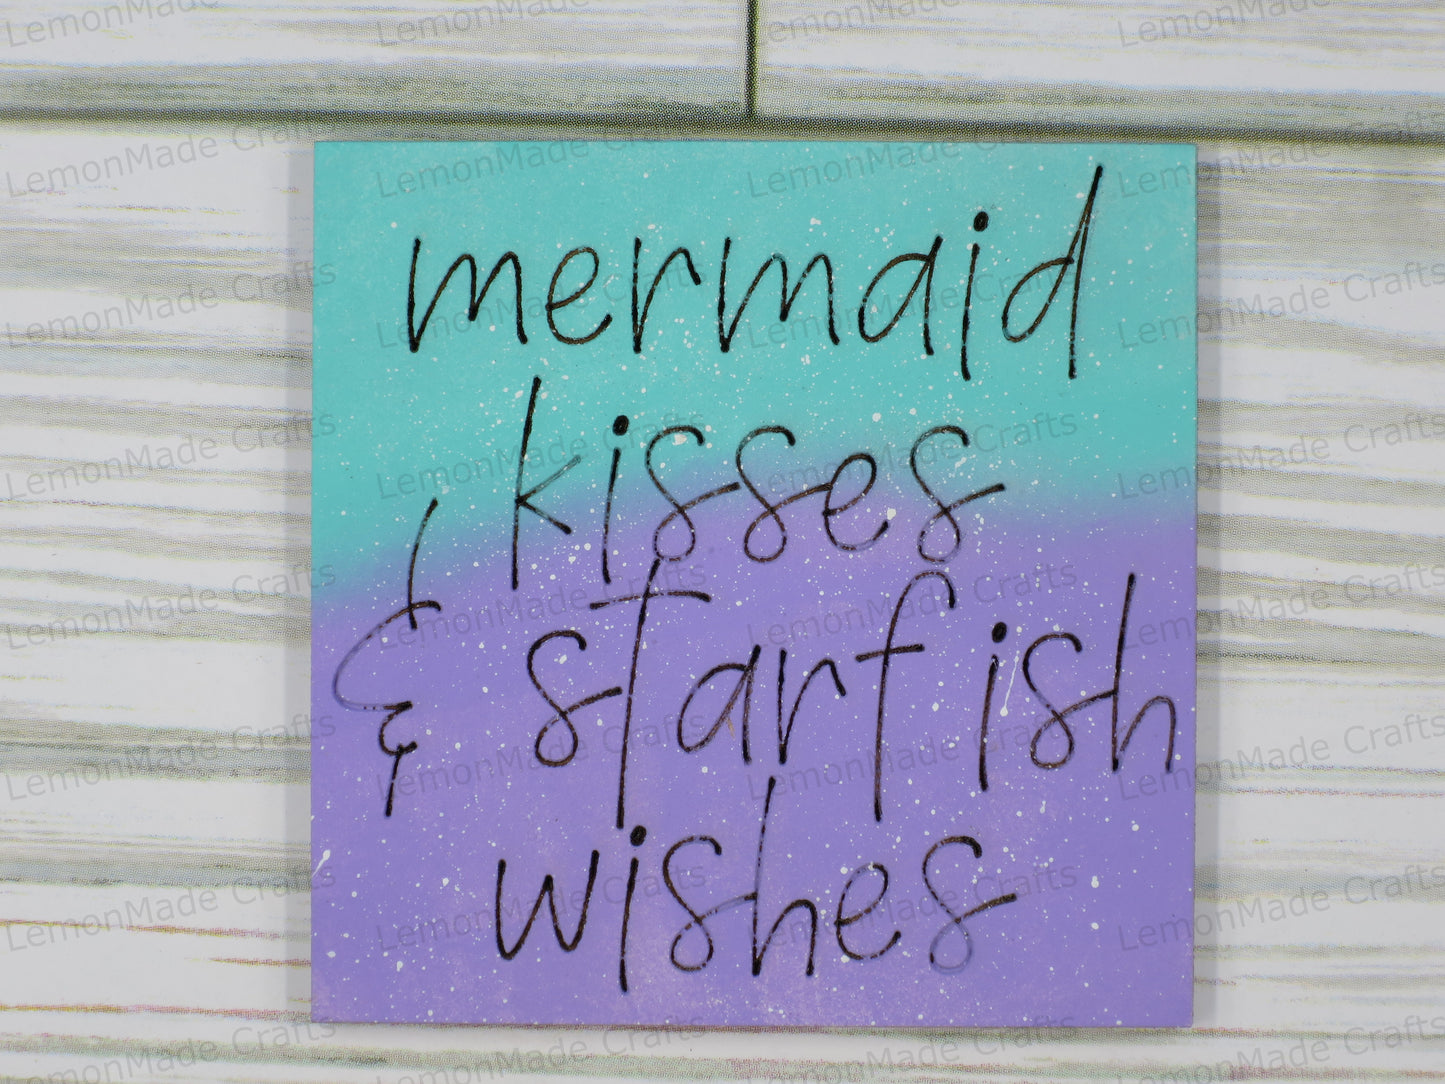 mermaid
kisses
& starfish
wishes
LemonMade Crafts